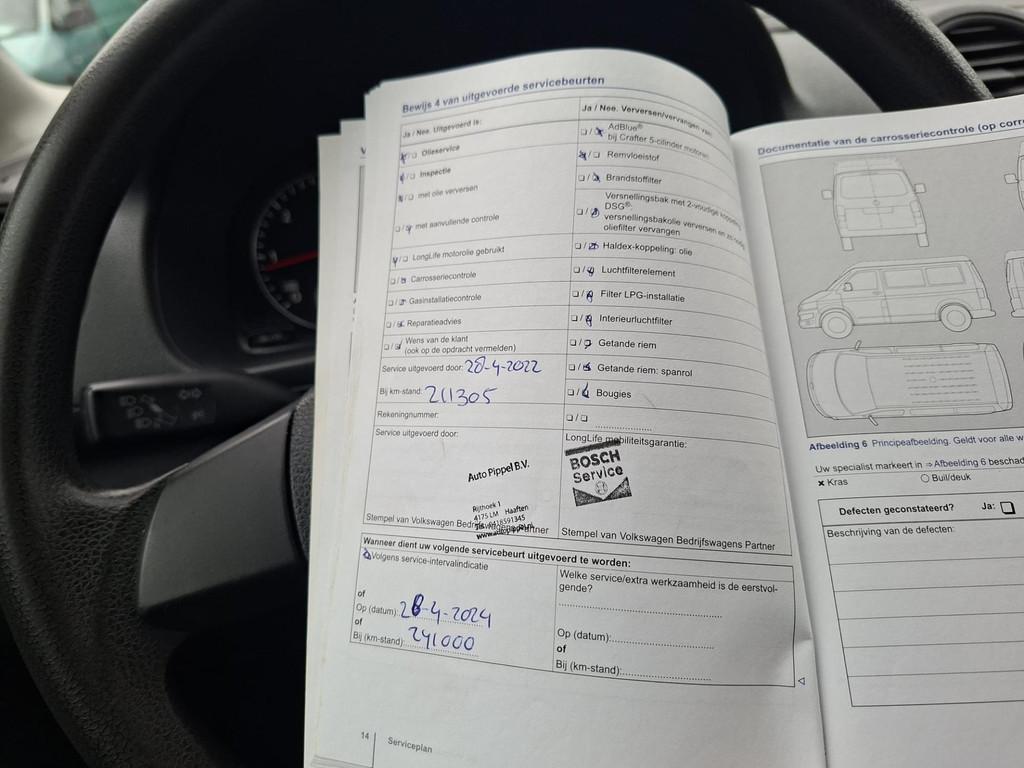 Bewijs 4 van uitgevoerde servicebeurten
Ja / Nee. Uitgevoerd is:
Olieservice
Inspectie
met olie verversen
met aanvullende controle
LongLife motorolie gebruikt
Carrosseriecontrole
Gasinstallatiecontrole
Reparatieadvies
Wens van de klant
(ook op de opdracht vermelden)
Service uitgevoerd door: 28-4-2022
Bij km-stand: 211305
Rekeningnummer:
Service uitgevoerd door:
Auto Pippel B.V.
Rijthoek 1
4175 LM Haaften
Stempel van Volkswagen Bedrijfswagens Partner
Ja / Nee. Verversen/vervangen van
AdBlue®
bij Crafter 5-cilinder motoren
Remvloeistof
Brandstoffilter
Versnellingsbak met 2-voudige
DSG®:
versnellingsbakolie verversen en
oliefilter vervangen
Haldex-koppeling: olie
Luchtfilterelement
Filter LPG-installatie
Interieurluchtfilter
Getande riem
Getande riem: spanrol
Bougies
LongLife mobiliteitsgarantie:
BOSCH
Service
Stempel van Volkswagen Bedrijfswagens Partner
Wanneer dient uw volgende servicebeurt uitgevoerd te worden:
Volgens service-intervalindicatie
of
Op (datum): 28-4-2024
of
Bij (km-stand): 241000
Welke service/extra werkzaamheid is de eerstvol-
gende?
Op (datum):
of
Bij (km-stand):
14 Serviceplan
Documentatie van de carrosseriecontrole (op corr
Afbeelding 6 Principeafbeelding. Geldt voor alle
Uw specialist markeert in ⇒ Afbeelding 6 beschad
x Kras
Buil/deuk
Defecten geconstateerd? Ja:
Beschrijving van de defecten: